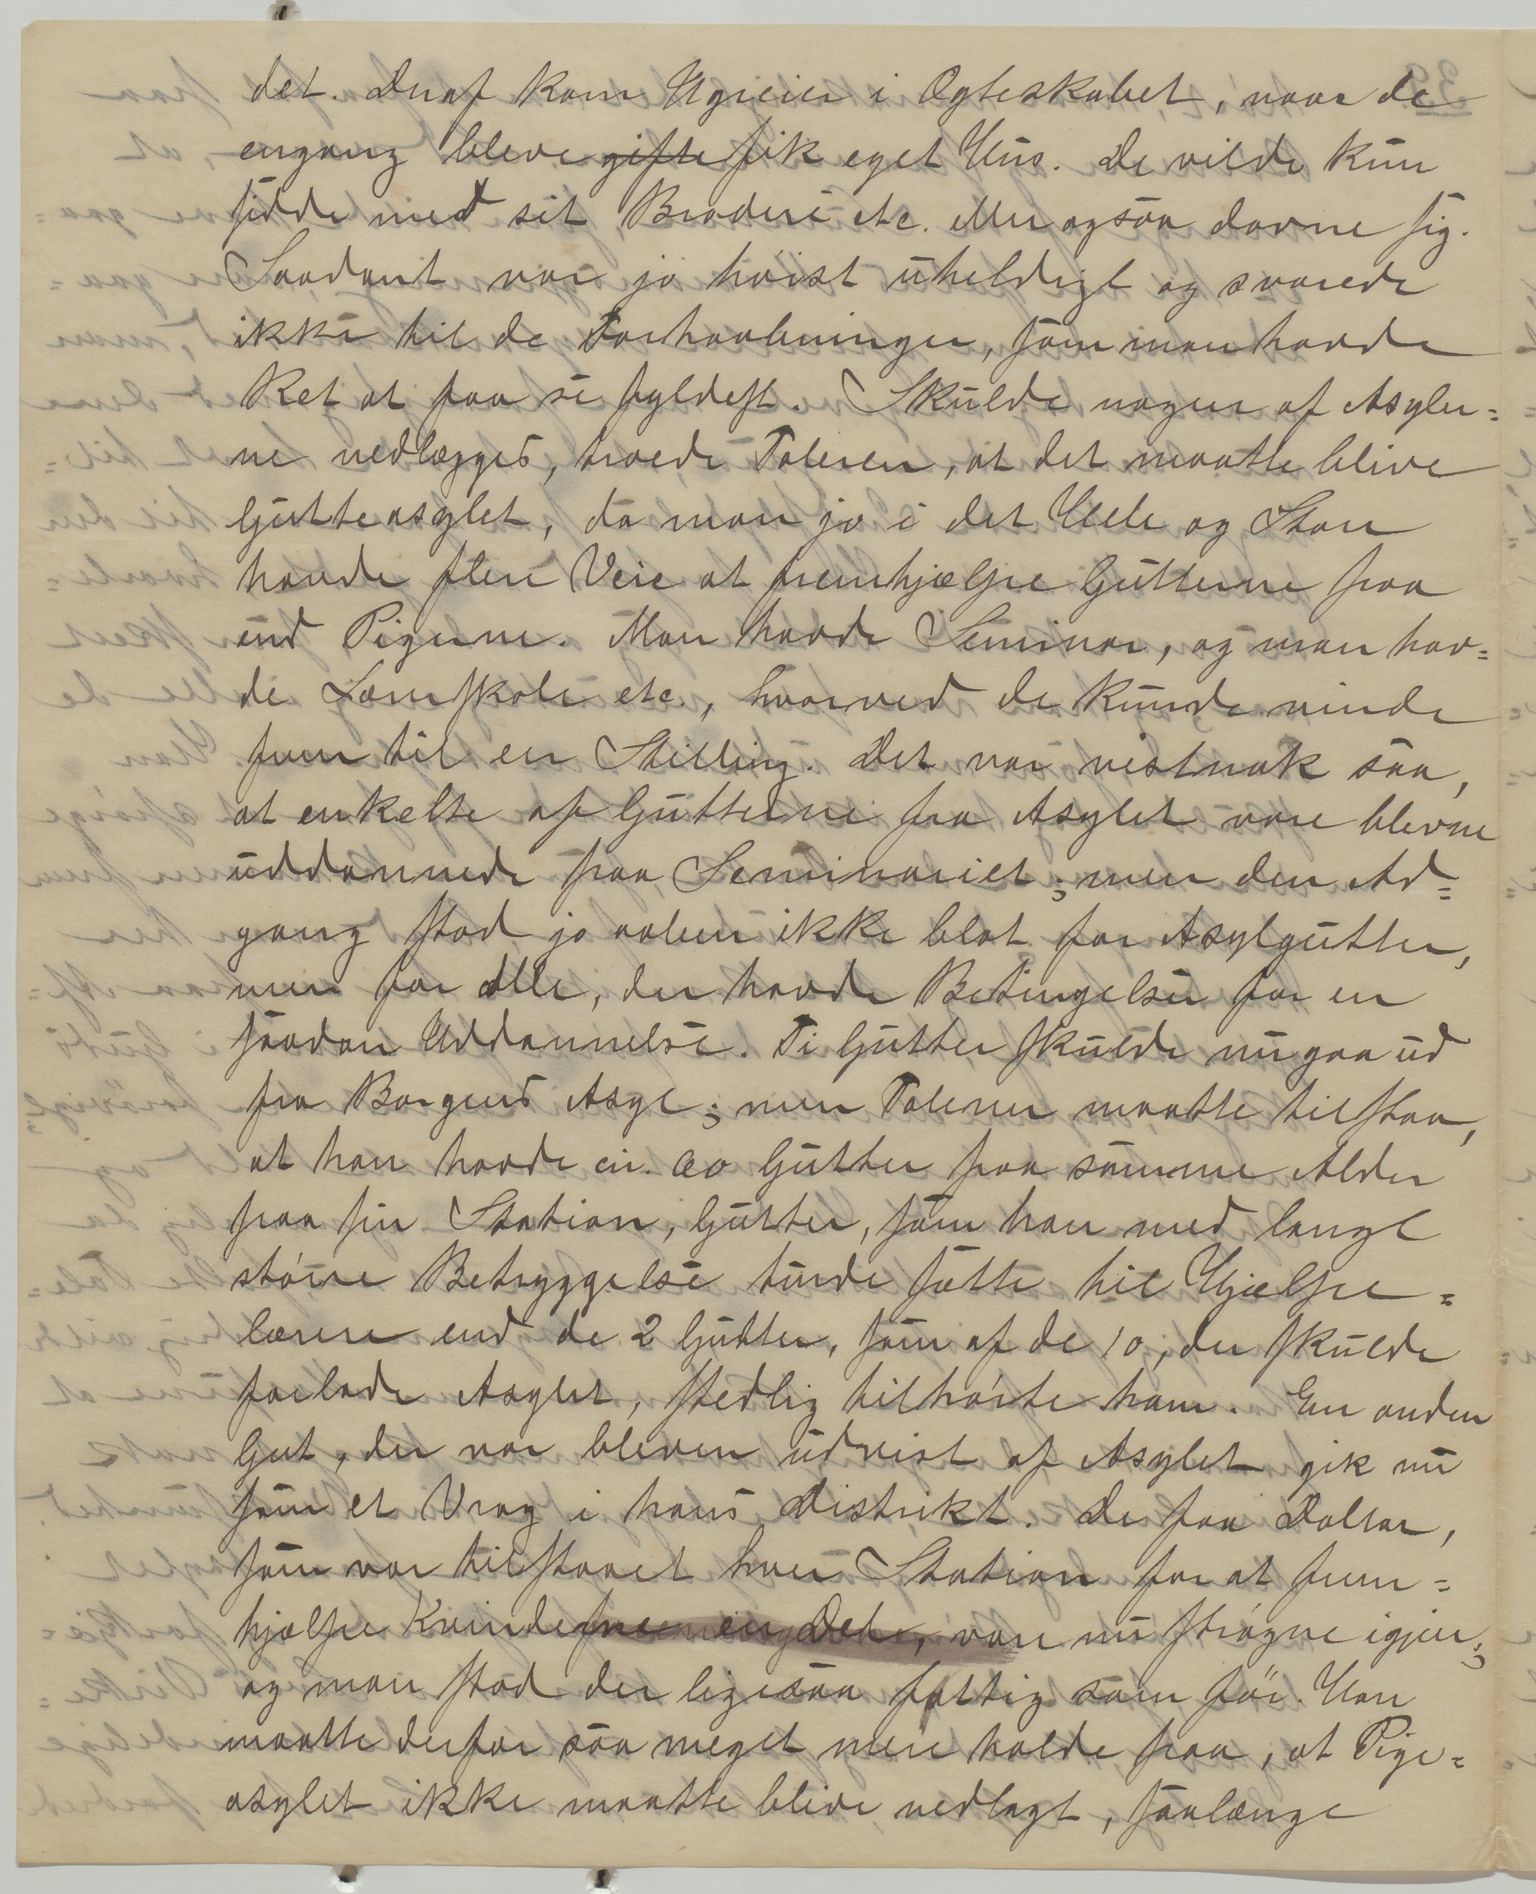 det. Deraf kom Ugreier i Ægteskabet, naar de
engang bleve gifte fik eget Hus. De vilde kun
sidde med sit Broderi etc. Men ogsaa dovne sig.
Saadant var jo høist uheldigt og svarede
ikke til de Forhaabninger, som man havde
Ret at faa se fyldest. Skulde nogen af Asyler=
ne nedlægges, troede Taleren, at det maatte blive
Gutteasylet, da man jo i det Hele og Store
havde flere Veie at fremhjælpe Gutterne paa
end Pigerne. Man havde Seminar, og man hav=
de Lærerskole etc., hvorved de kunde vinde
frem til en Stilling. Det var vistnok saa,
at enkelte af Gutterne fra Asylet vare blevne
uddannede paa Seminariet; men den Ad=
gang stod jo aaben ikke blot for Asylgutter,
men for Alle, der havde Betingelser for en
saadan Uddannelse. Ti Gutter skulde nu gaa ud
fra Borgens Asyl; men Taleren maatte tilstaa,
at han havde cir. 20 Gutter paa samme Alder
paa sin Station, Gutter, som han med langt
større Betryggelse turde sætte til Hjælpe=
lærere end de 2 Gutter, som af de 10, der skulde
forlade Asylet, stedlig tilhørte ham. En anden
Gut, der var bleven udvist af Asylet gik nu
som et Vrag i hans Distrikt. De faa Dollar,
som var tilstaaet hver Station for at frem=
hjælpe Kvinderne en Del, vare nu strøgne igjen;
og man stod der ligesaa fattig som før. Han
maatte derfor saa meget mere holde paa, at Pige=
asylet ikke maatte blive nedlagt, saalænge